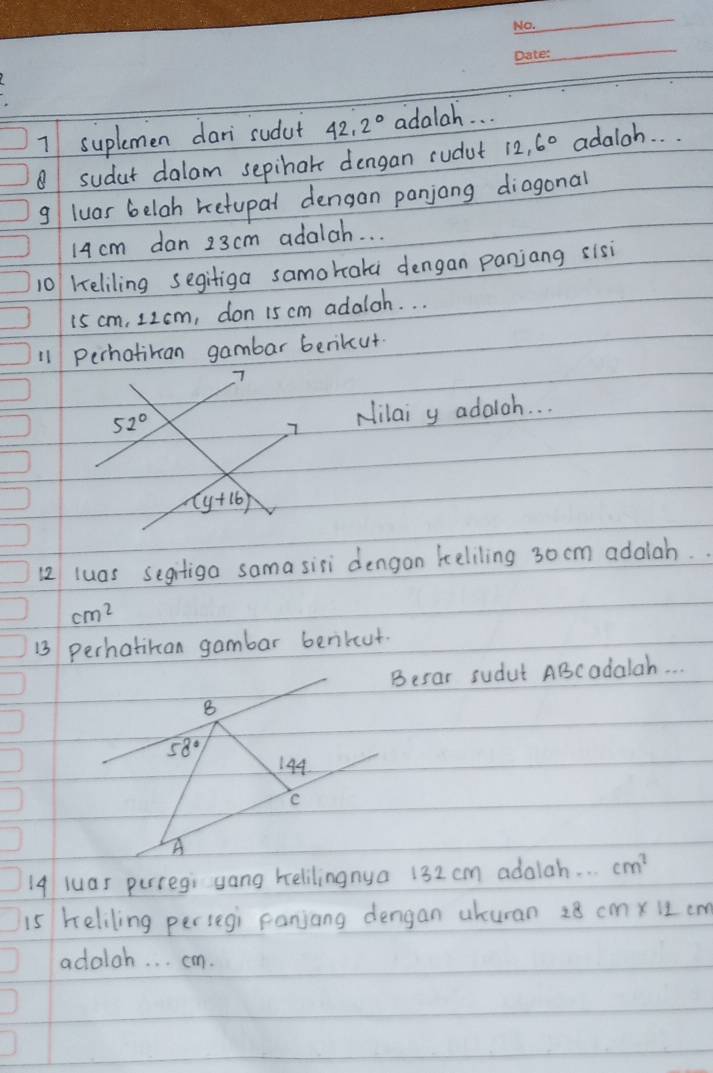 No.
Date:
7 suplemen dari sudut 42,2° adalah...
8 sudut dalam sepihak dengan sudut 12,6° adalah...
9 luas belah ketupat dengan panjang diagonal
14 cm dan 23cm adalah...
10 Keliling segitiga samakaki dengan panjang sisi
15 cm, 22cm, dan 15 cm adalah...
11 perhatikan gambar berikut.
52°
Nilai y adalah...
(y+16)
12 luas segitiga sama sisi dengan keliling 30 cm adalah..
cm²
13 perhatikan gambar berikut.
Besar sudut ABC adalah...
B
58°
144
C
A
14 luas persegi yang kelilingnya 132 cm adalah... cm²
15 keliling persegi panjang dengan ukuran 28 cm x 12 cm
adalah... cm.